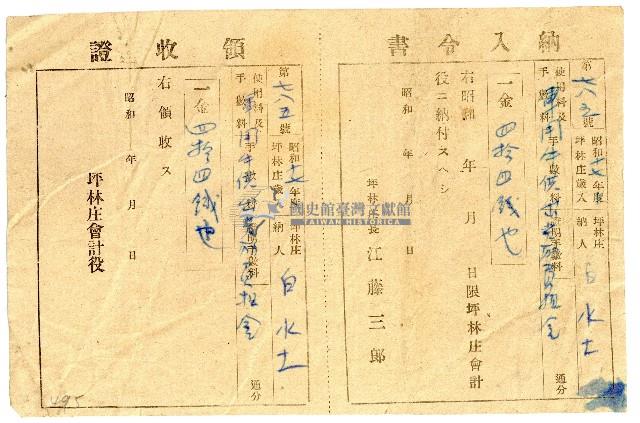 納入令書
第七八五號
昭和十七年度坪林庄
坪林庄歲入
納人
白水土
使用料及
手數料
手數料
通分
一金四拾四錢也
右昭和 年 月 日限坪林庄會計
役ニ納付スヘシ
昭和 年 月 日
坪林庄長 江藤三郎
領收證
第七八五號
昭和十七年度坪林庄
坪林庄歲入
納人
白水土
使用料及
手數料
手數料
通分
一金四拾四錢也
右領收ス
昭和 年 月 日
坪林庄會計役
國史館臺灣文獻館
TAIWAN HISTORICA
495